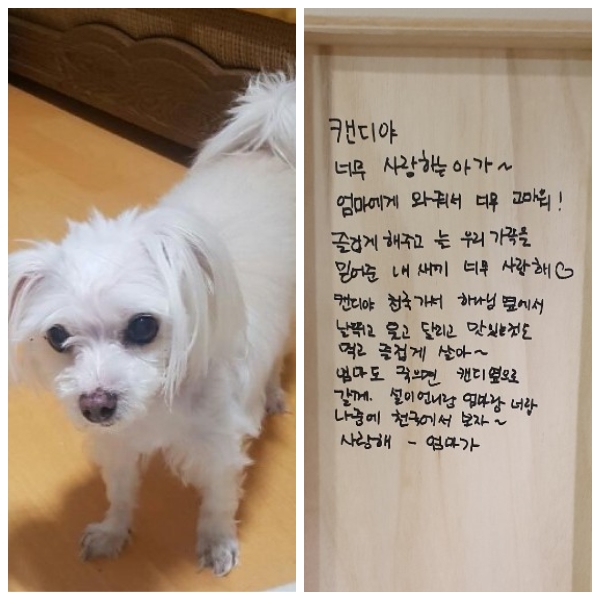 캔디야
너무 사랑하는 아가~
엄마에게 와줘서 너무 고마워!
즐겁게 해주고 는 우리 가족을
믿어준 내 새끼 너무 사랑해♡
캔디야 천국가서 하나님 옆에서
날뛰고 물고 달리고 맛있는것도
먹고 즐겁게 살아~
엄마도 죽으면 캔디옆으로
갈게. 설이언니랑 엄마랑 너랑
나중에 천국에서 보자~
사랑해 - 엄마가